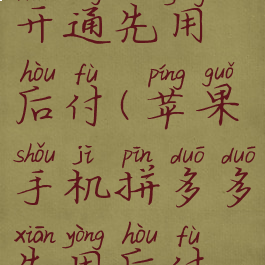 开通先用
hòu fù píng guǒ
后付(苹果
shǒu jī pīn duō duō
手机拼多多
xiān yòng hòu fù
先用后付